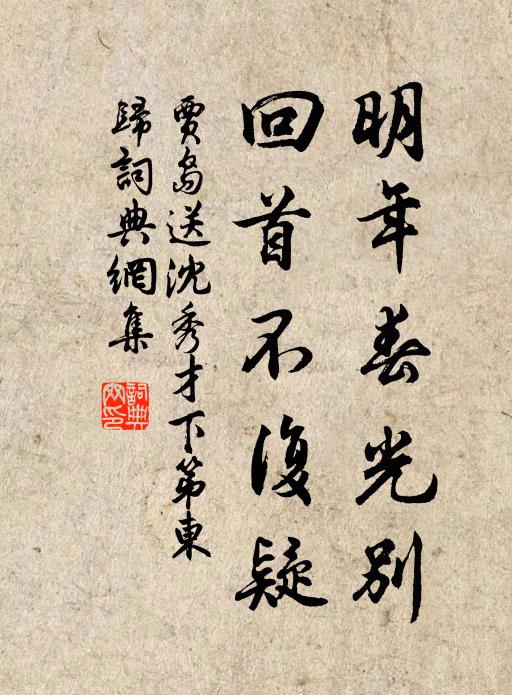 明年春光別
回首不復疑
賈島送沈秀才下第東
歸詞典網集
詞典
网印